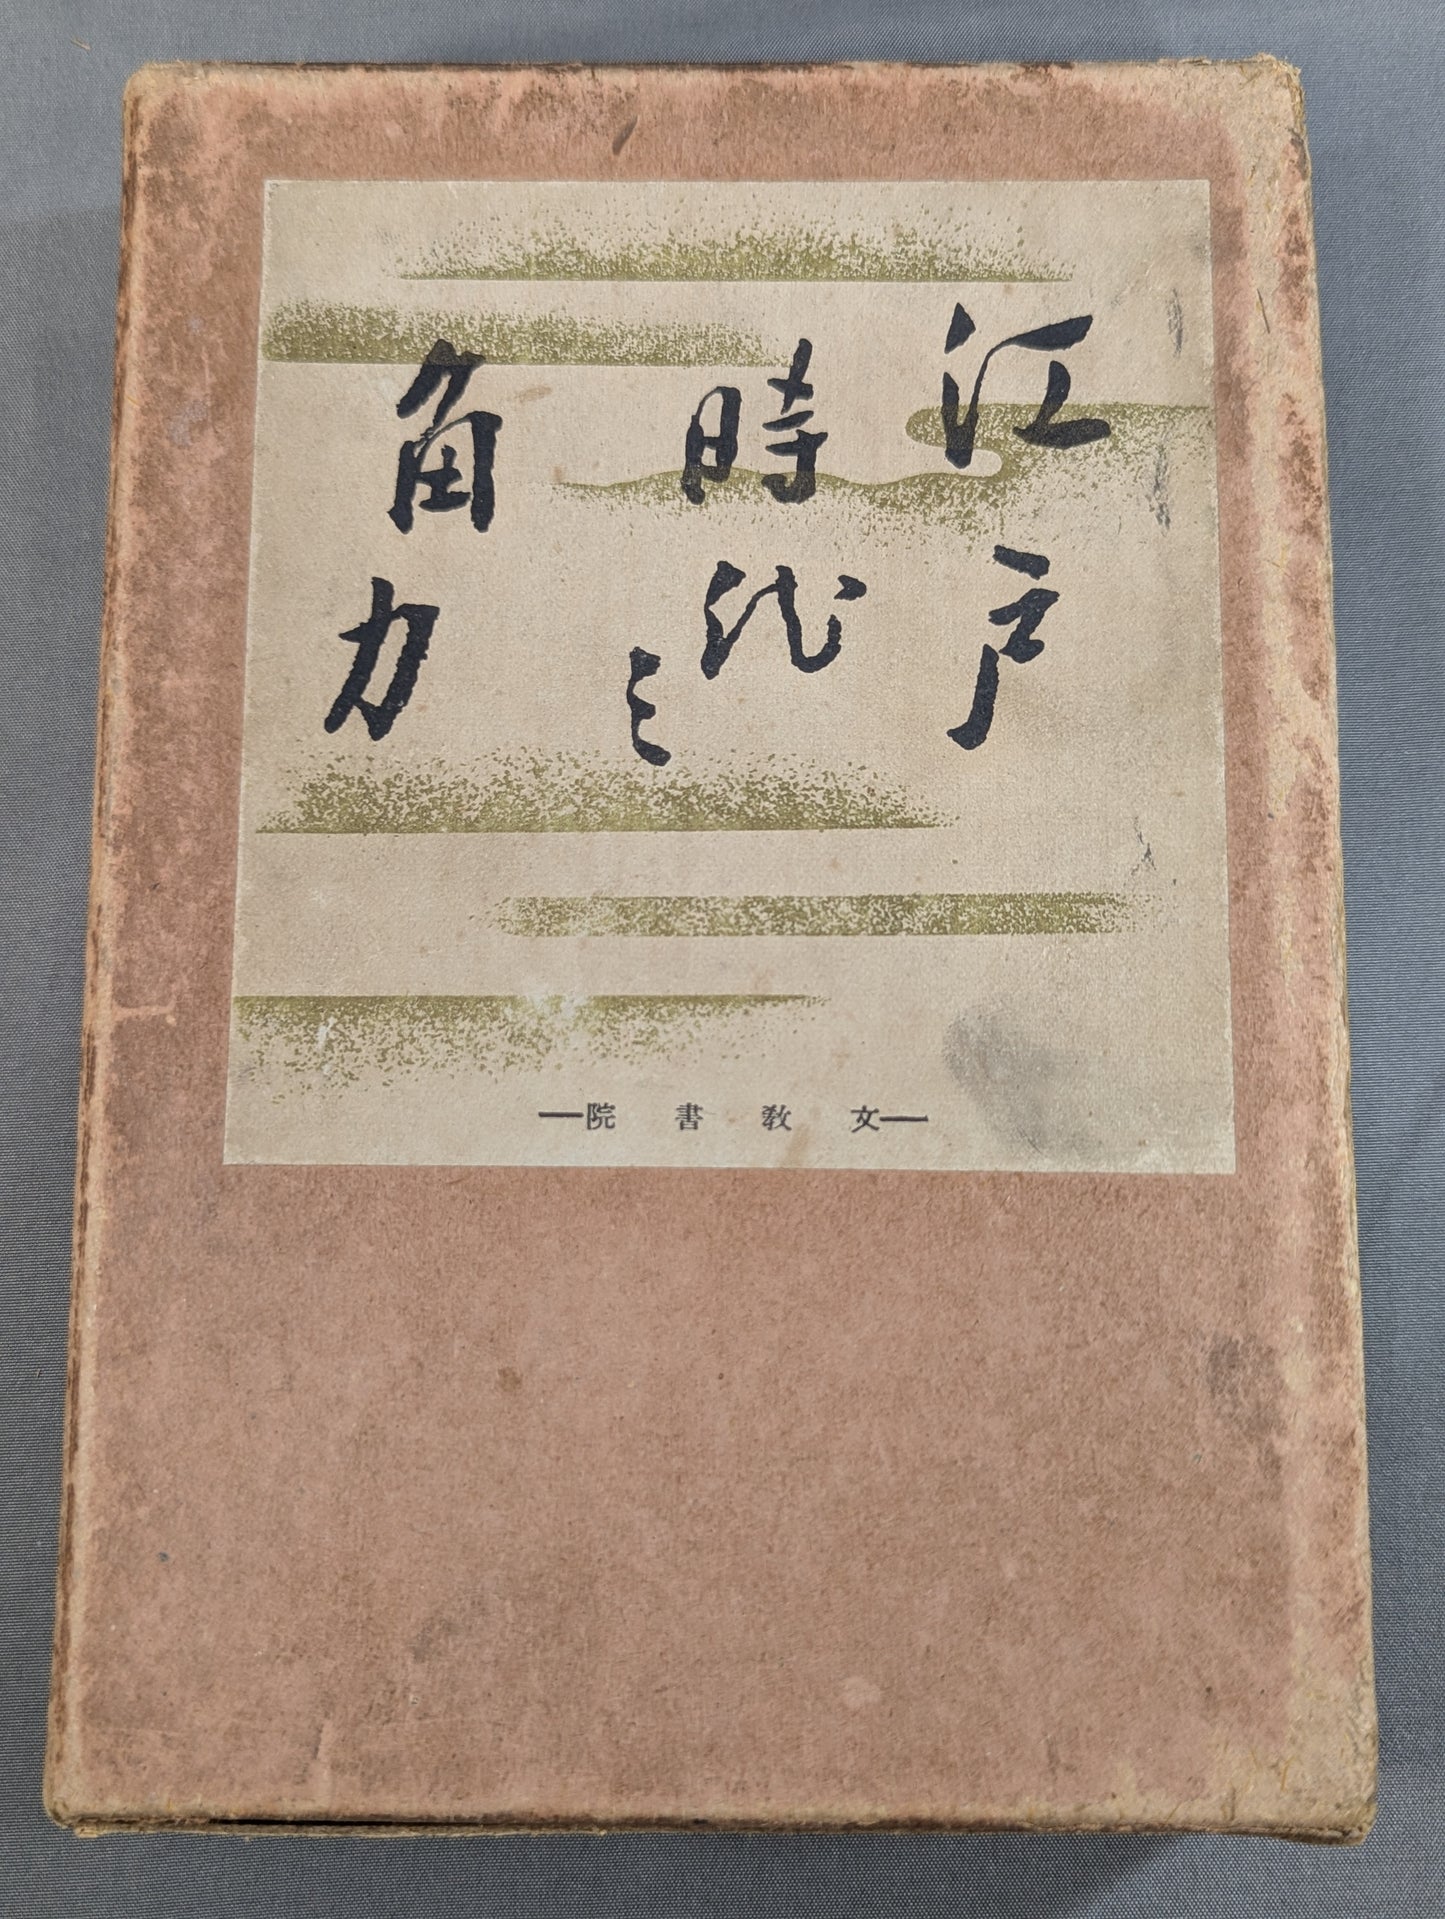 江戸
時代之
角力
文教書院